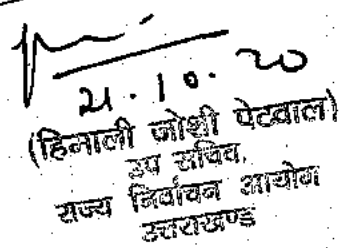 21.10.20
(हिमाली जोशी पेटवाल)
उप सचिव,
राज्य निर्वाचन आयोग
उत्तराखण्ड